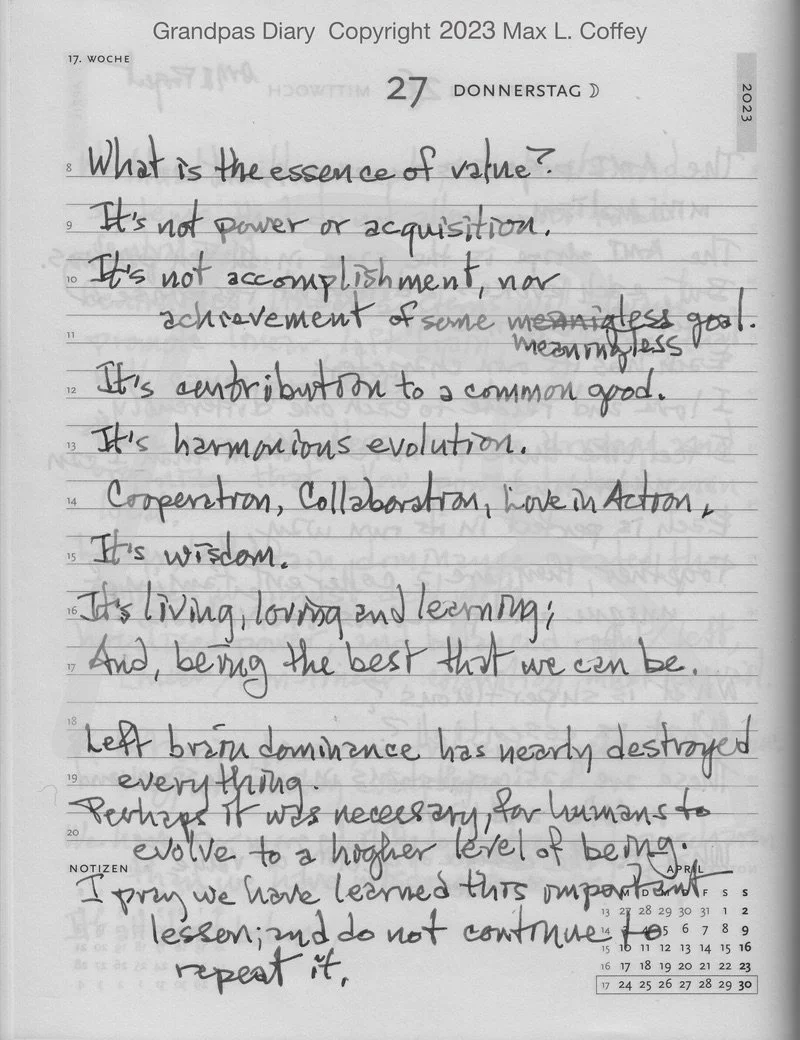 Grandpas Diary Copyright 2023 Max L. Coffey
17. WOCHE
27 DONNERSTAG
2023
8 What is the essence of value?
9 It's not power or acquisition.
10 It's not accomplishment, nor
achievement of some meanigless goal.
11 meaningless
12 It's contribution to a common good.
13 It's harmonious evolution.
14 Cooperation, Collaboration, Love in Action,
15 It's wisdom.
16 It's living, loving and learning;
17 And, being the best that we can be.
18 Left brain dominance has nearly destroyed
19 everything.
Perhaps it was necessary, for humans to
20 evolve to a higher level of being.
NOTIZEN
I pray we have learned this important
lesson; and do not continue to
repeat it.
APRIL
M D F S S
13 27 28 29 30 31 1 2
14 6 7 8 9
15 10 11 12 13 14 15 16
16 17 18 19 20 21 22 23
17 24 25 26 27 28 29 30